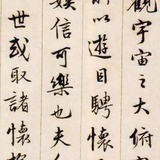 觀宇宙之大俯
所以遊目騁懷
娛信可樂也夫
世或取諸懷抱